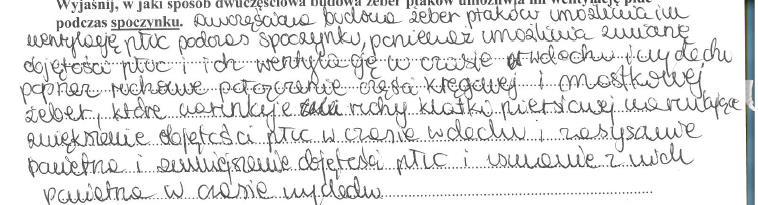 Wyjaśnij, w jaki sposób dwuczęściowa budowa żeber ptaków umożliwia im wentylację płuc
podczas spoczynku. Dwuczęściowa budowa żeber ptaków umożliwia im
wentylację płuc podczas spoczynku, ponieważ umożliwia zmianę
objętości płuc i ich wentylację w czasie wdechu i wydechu
poprzez ruchome połączenie części kręgowej i mostkowej
żeber, które warunkuje ruchy klatki piersiowej warunkujące
zwiększenie objętości płuc w czasie wdechu i zasysanie
powietrza i zmniejszenie objętości płuc i usuwanie z nich
powietrza w czasie wydechu